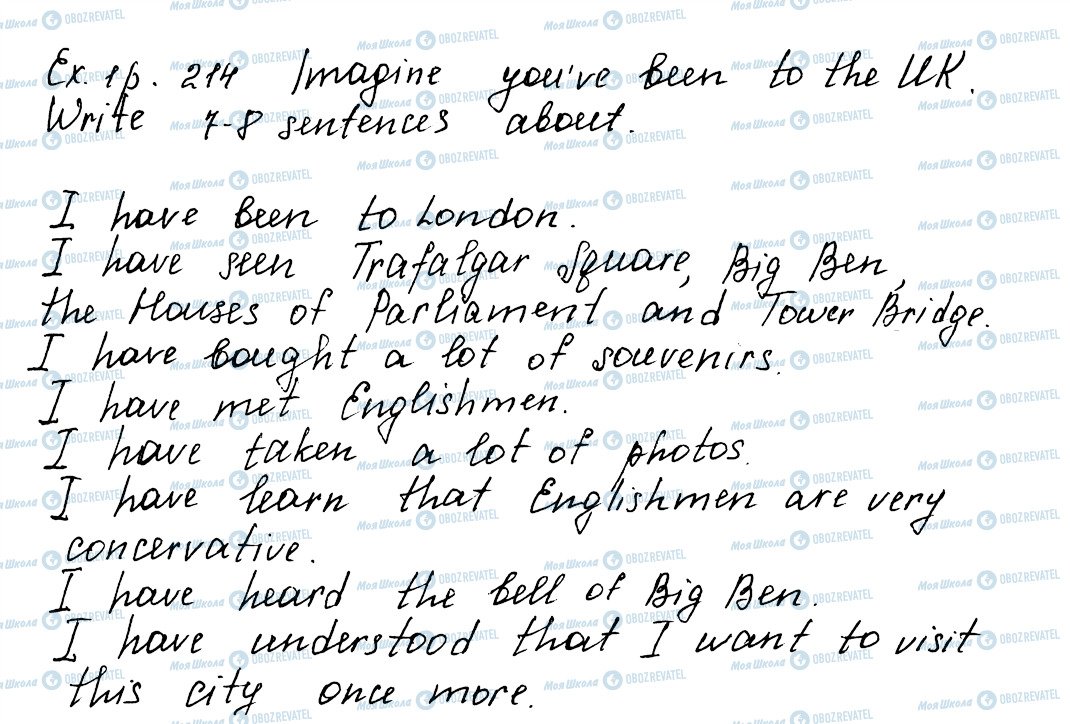 Ex. 1 p. 214 Imagine you've been to the UK.
Write 7-8 sentences about.
I have been to London.
I have seen Trafalgar Square, Big Ben,
the Houses of Parliament and Tower Bridge.
I have bought a lot of souvenirs.
I have met Englishmen.
I have taken a lot of photos.
I have learn that Englishmen are very
concervative.
I have heard the bell of Big Ben.
I have understood that I want to visit
this city once more.